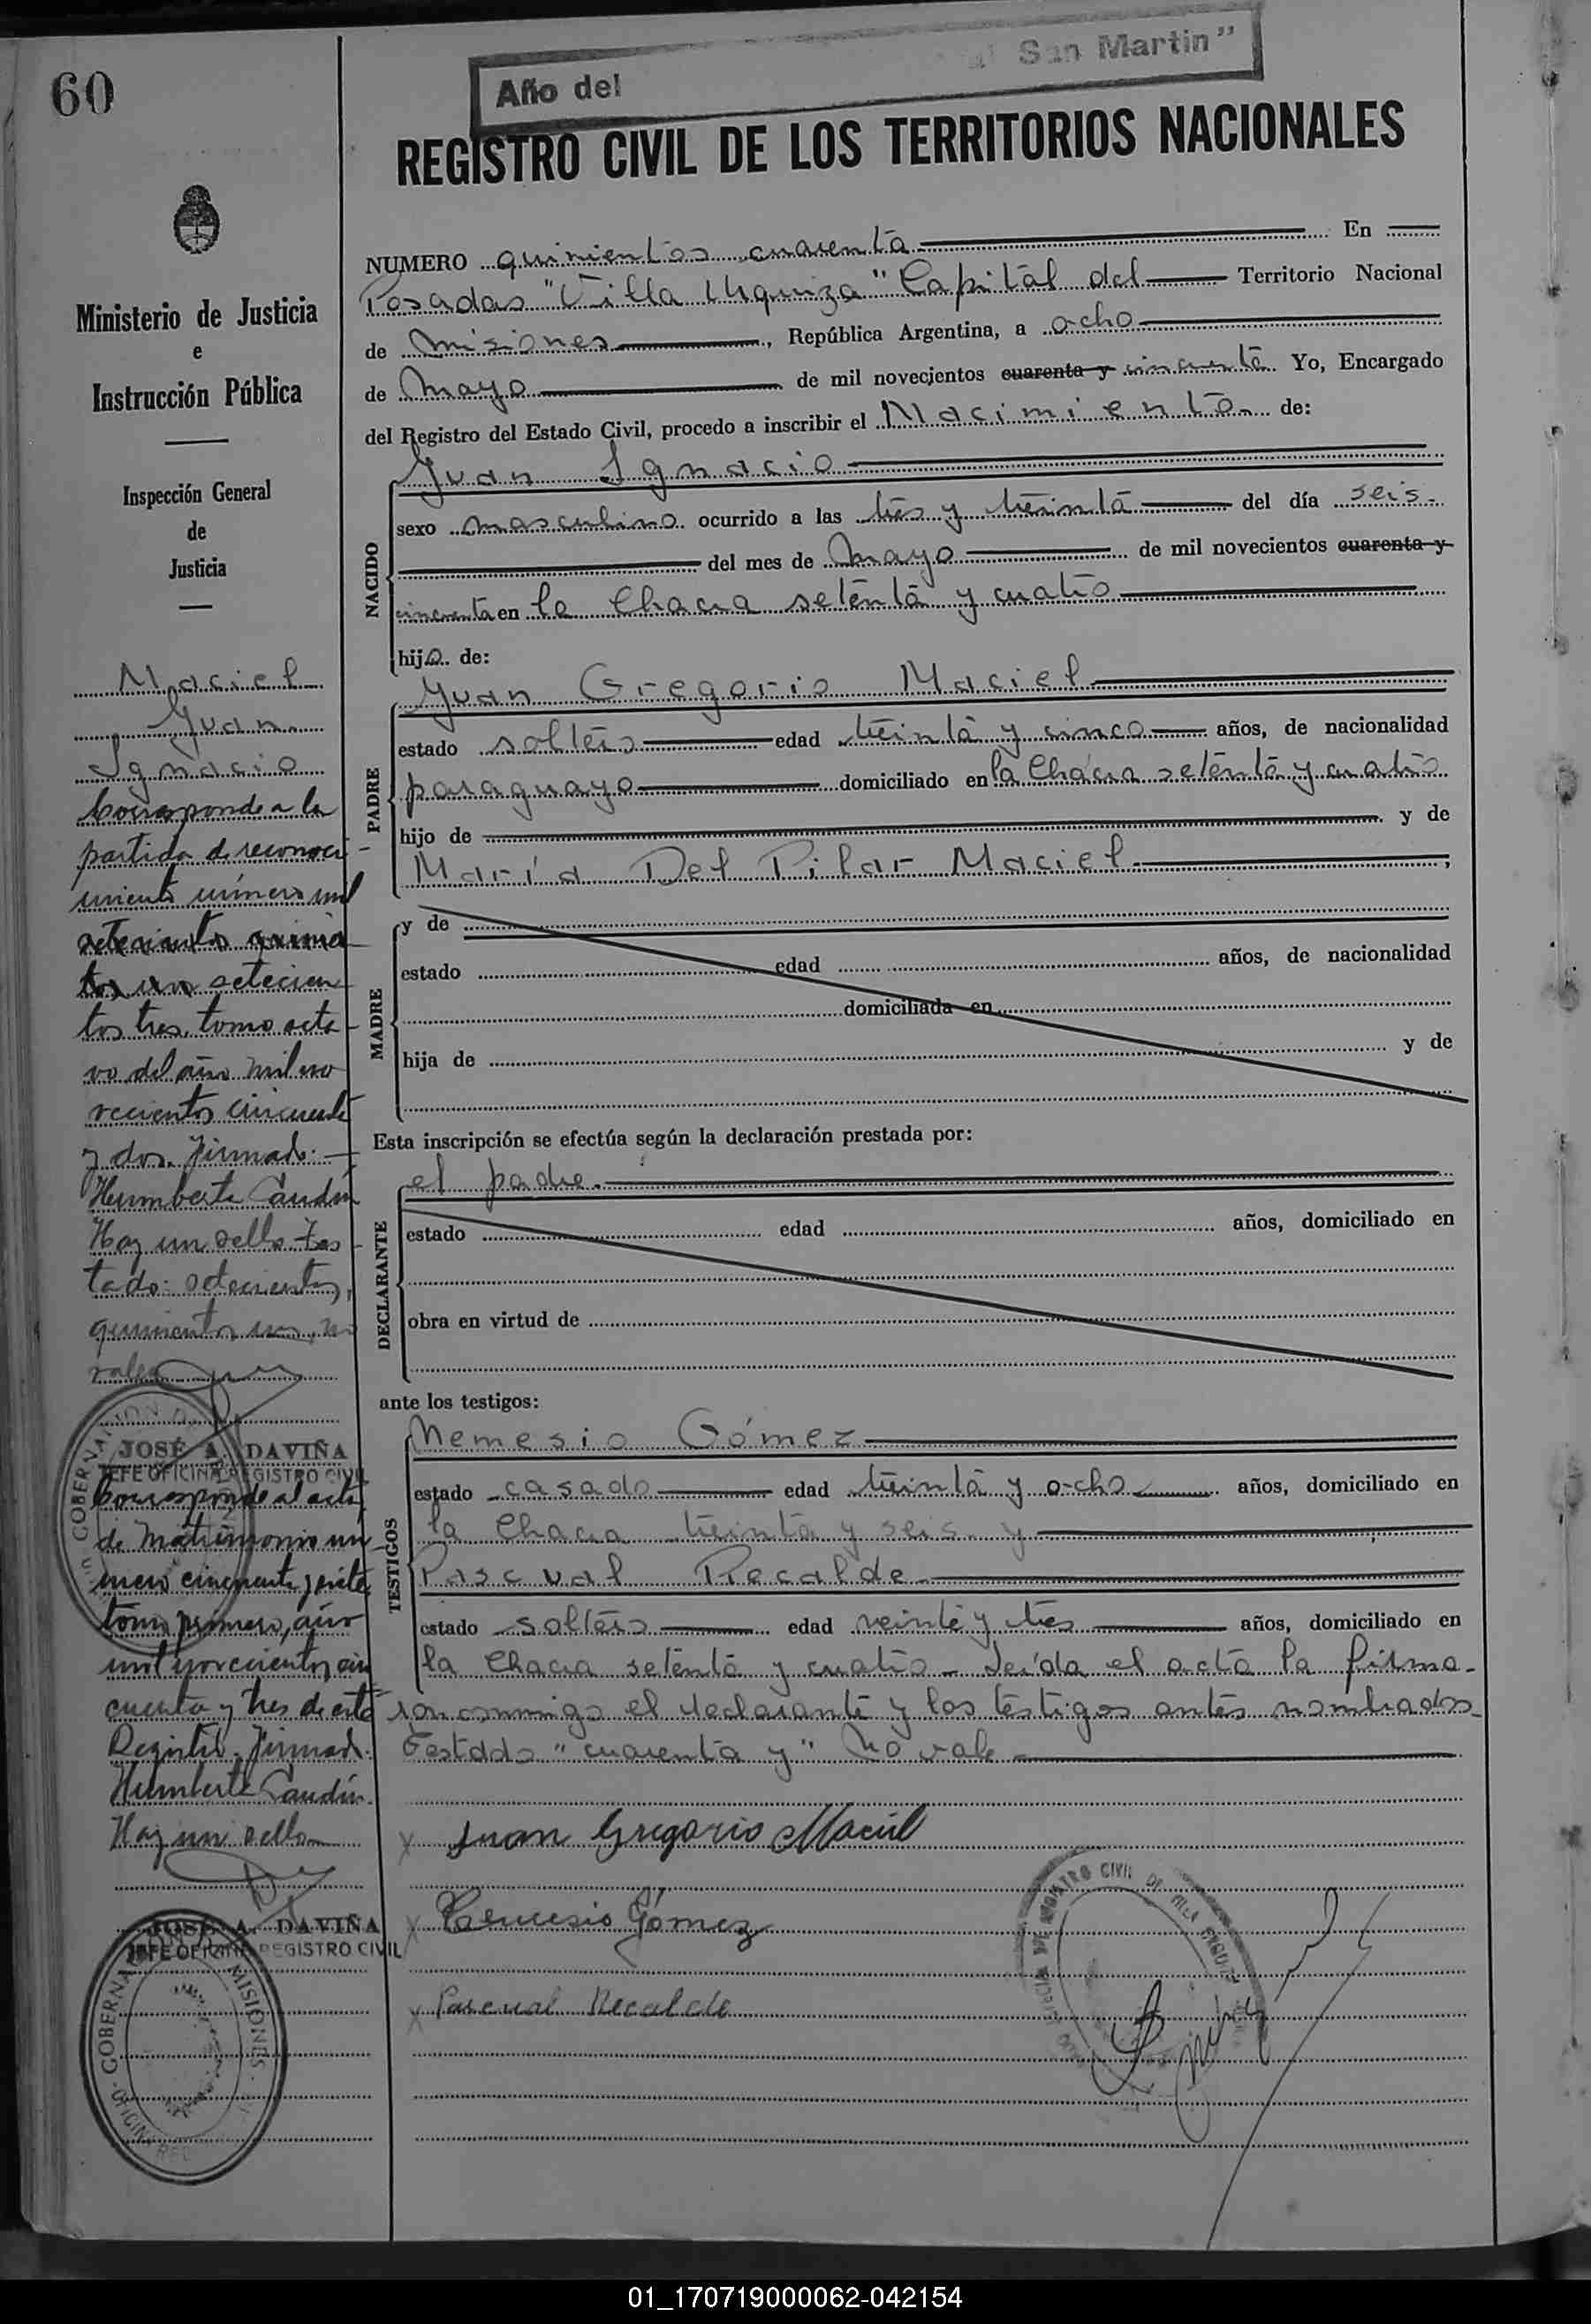 60
Año del al San Martin"
REGISTRO CIVIL DE LOS TERRITORIOS NACIONALES
Ministerio de Justicia
e
Instrucción Pública
Inspección General
de
Justicia
Maciel
Juan
Ignacio
Corresponde a la
partida de reconoci-
miento número mil
setecientos quinien
tos un setecien
tos tres, tomo octa-
vo del año mil no
vecientos cincuenta
y dos. Firmado:
Humberto Caudín
Hay un sello. Tes-
tado: setecientos,
quinientos un, no
vale
JOSÉ A. DAVIÑA
JEFE OFICINA REGISTRO CIVIL
Corresponde al acta
de matrimonio nú-
mero cincuenta y siete
tomo primero, año
mil novecientos cin
cuenta y tres de este
Registro. Firmado:
Humberto Caudín.
Hay un sello
JOSE A. DAVIÑA
JEFE OFICINA REGISTRO CIVIL
GOBERNACION MISIONES
OFICINA REG
NUMERO quinientos cuarenta En
Posadas "Villa Urquiza" Capital del Territorio Nacional
de Misiones, República Argentina, a ocho
de Mayo de mil novecientos cuarenta y cincuenta Yo, Encargado
del Registro del Estado Civil, procedo a inscribir el Nacimiento de:
NACIDO
Juan Ignacio
sexo masculino ocurrido a las tres y treinta del día seis
del mes de Mayo de mil novecientos cuarenta y
cincuenta en la Chacra setenta y cuatro
hijo de:
PADRE
Juan Gregorio Maciel
estado soltero edad treinta y cinco años, de nacionalidad
paraguayo domiciliado en la Chacra setenta y cuatro
hijo de y de
María Del Pilar Maciel;
MADRE
y de
estado edad años, de nacionalidad
domiciliada en
hija de y de
Esta inscripción se efectúa según la declaración prestada por:
DECLARANTE
el padre.
estado edad años, domiciliado en
obra en virtud de
ante los testigos:
TESTIGOS
Nemesio Gómez
estado casado edad treinta y ocho años, domiciliado en
la Chacra treinta y seis y
Pascual Recalde
estado soltero edad veinte y tres años, domiciliado en
la Chacra setenta y cuatro. Leída el acta la firma-
ron conmigo el declarante y los testigos antes nombrados
Testado "cuarenta y" No vale
x Juan Gregorio Maciel
x Nemesio Gómez
x Pascual Recalde
REGISTRO CIVIL DE VILLA URQUIZA